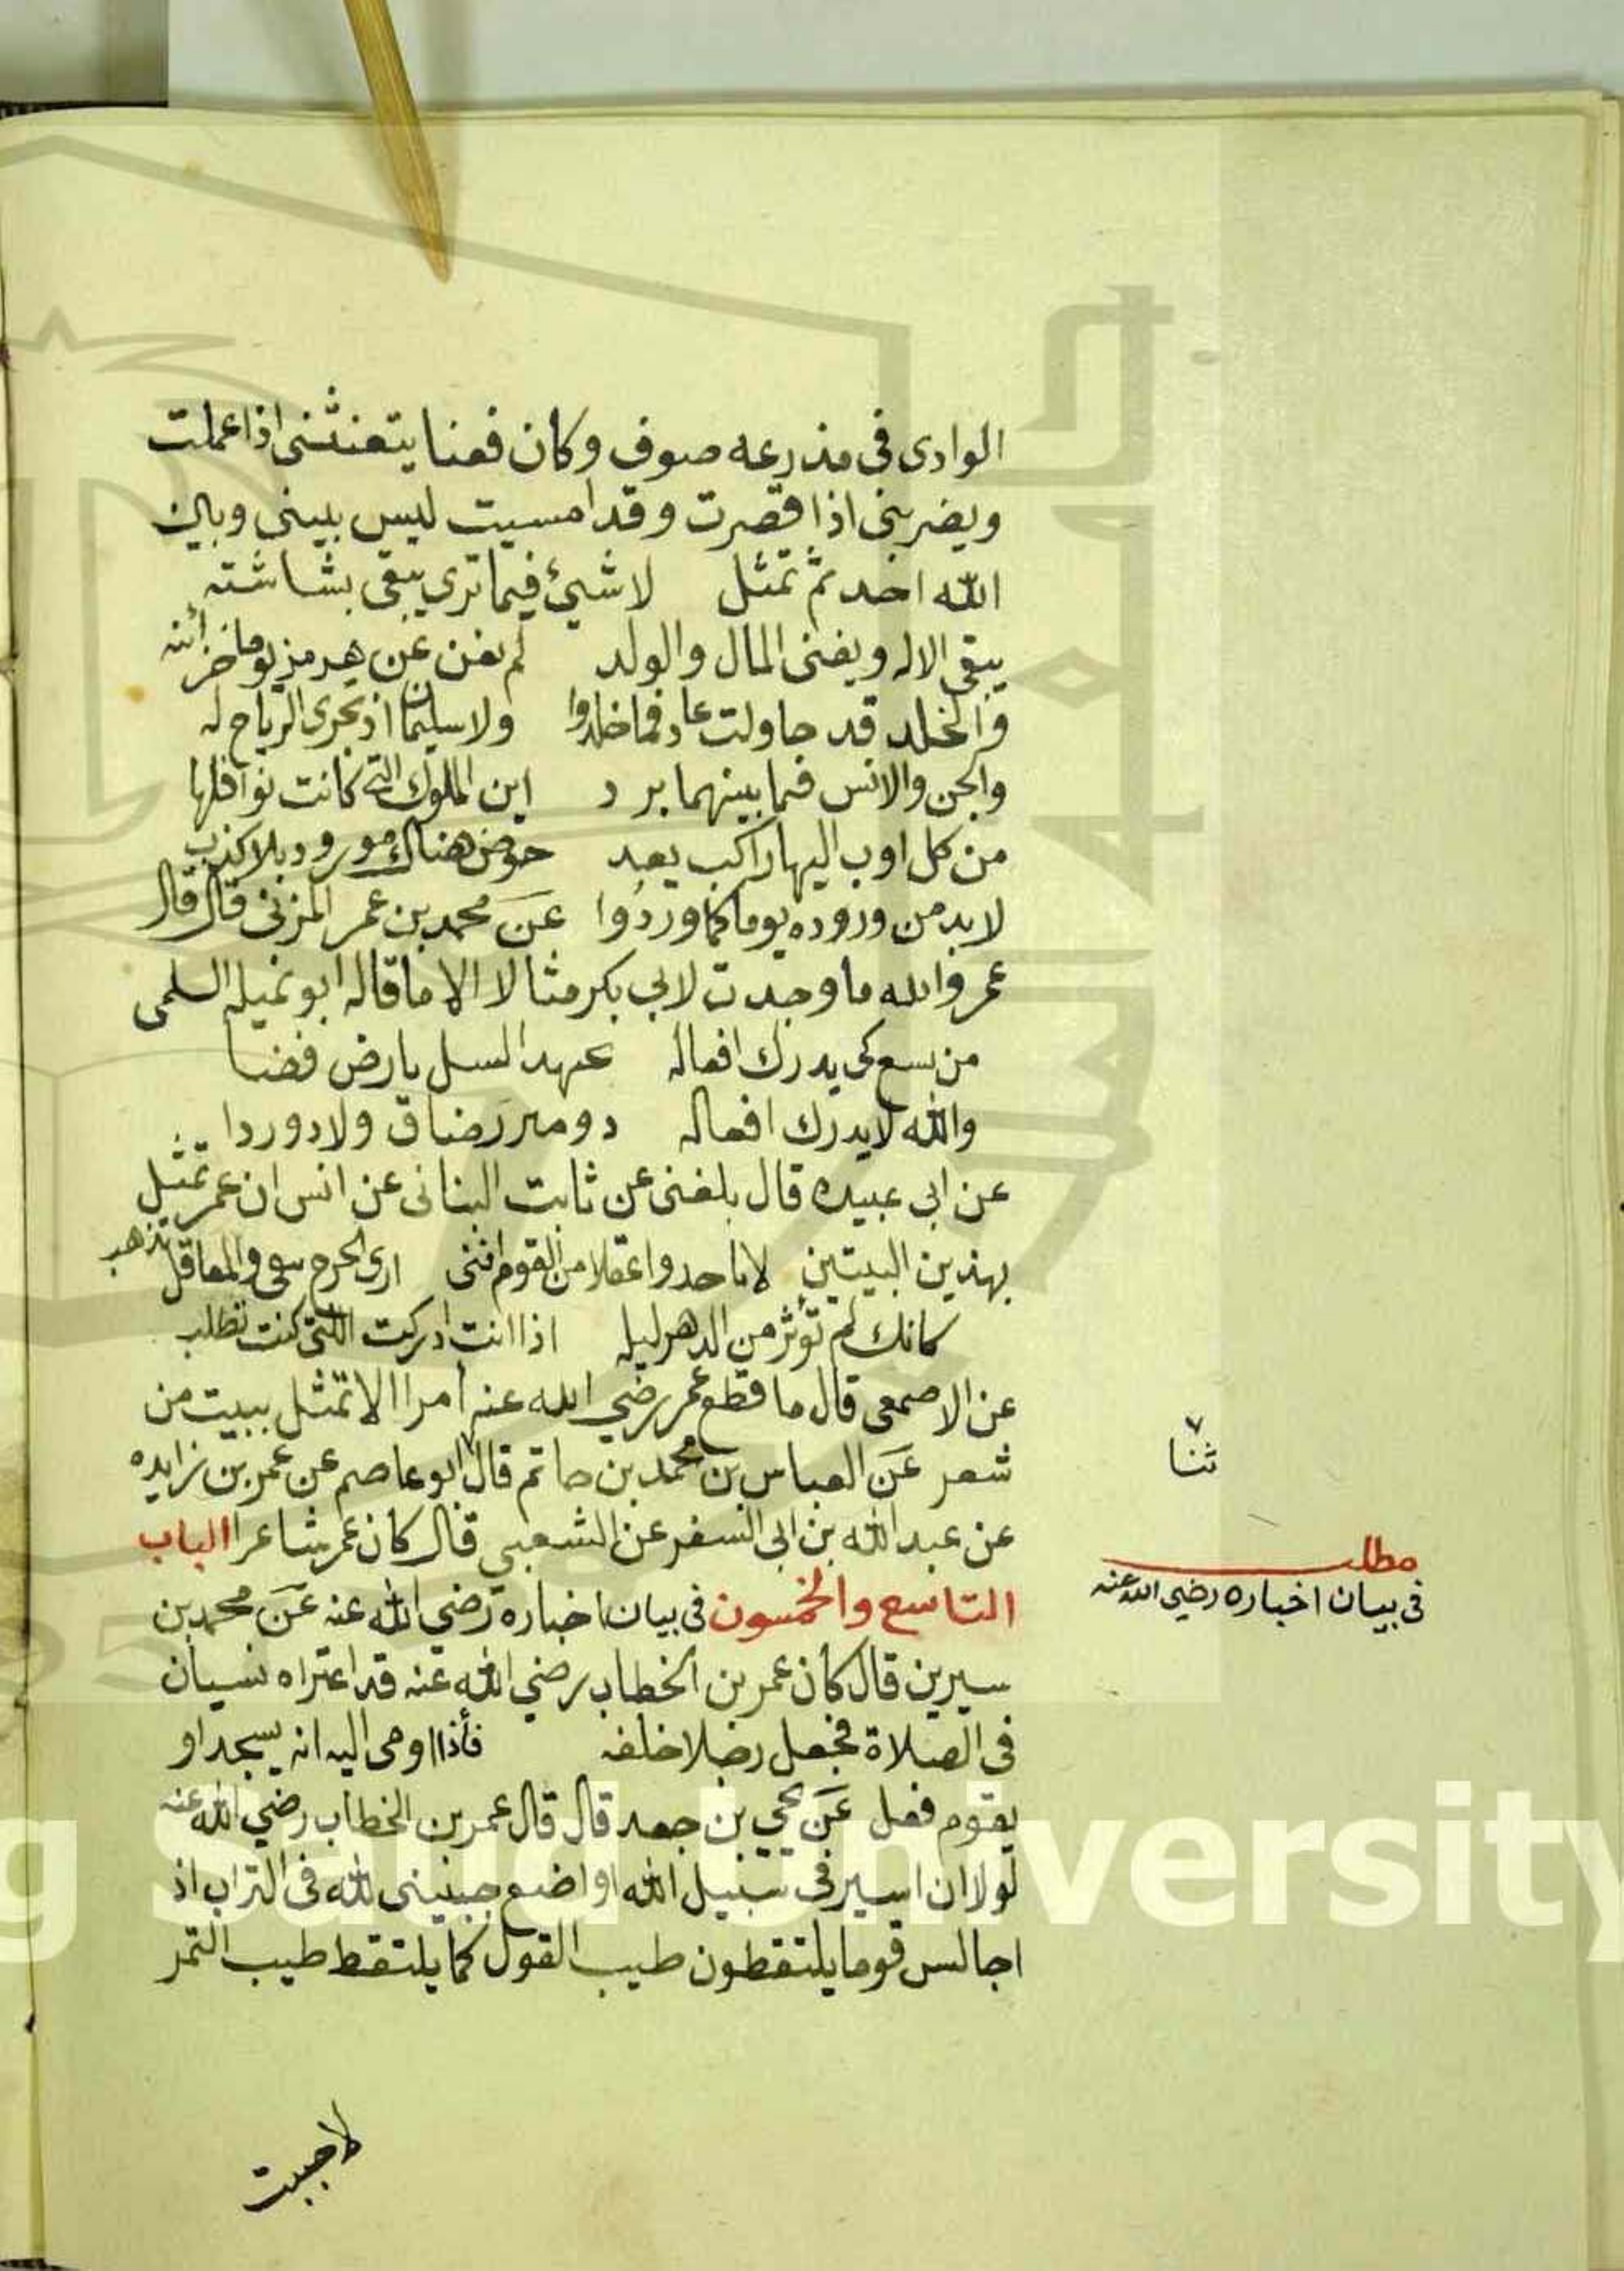 الوادى فى مذرعه صوف وكان فعنا يتعنثنى اذا عملت
ويضربنى اذا قصرت وقد امسيت ليس بينى وبين
الله احد ثم تمثل لا شيئ فيما ترى يبقى بشاشته
يبقى الاله ويفنى المال والولد لم يغن عن هرمز يوما خزائنه
والخلد قد حاولت عاد فما خلدوا ولا سليمان اذ تجرى الرياح له
والجن والانس فيما بينهما برد اين الملوك التى كانت نوافلها
من كل اوب اليها راكب يعد حوض هناك مورود بلا كذب
لا بد من وروده يوما كما وردوا عن محمد بن عمر المزنى قال قال
عمر والله ما وجدت لابي بكر مثالا الا ما قاله ابو نميله السلمى
من يسع كى يدرك افعاله عهد السل بارض فضا
والله لا يدرك افعاله دومىر رضاق ولا دوردا
عن ابى عبيده قال بلغنى عن ثابت البنانى عن انس ان عمر تمثل
بهذين البيتين واعقلا من القوم اننى ارى الحرح سى والمعاقل تذهب
كانك لم توثر من الدهر ليله اذا انت ادركت اللتى كنت تطلب
عن الاصمعى قال ما قطع عمر رضي الله عنه أمرا الا تمثل ببيت من
شعر عن العباس بن محمد بن حاتم قال ابو عاصم عن عمر بن زايده
ثنا
عن عبد الله بن ابى السفر عن الشعبي قال كان عمر شاعرا الباب
التاسع والخمسون فى بيان اخباره رضي الله عنه عن محمد بن
مطلب
فى بيان اخباره رضي الله عنه
سيرين قال كان عمر بن الخطاب رضي الله عنه قد اعتراه نسيان
فى الصلاة فجعل رجلا خلفه فأذا اومى اليه انه يسجد او
يقوم فعل عن يحي بن جعد قال قال عمر بن الخطاب رضي الله عنه
لولا ان اسير فى سبيل الله او اضع جبينى لله فى التراب اذ
اجالس قوما يلتقطون طيب القول كما يلتقط طيب التمر
لاحببت
King Saud University